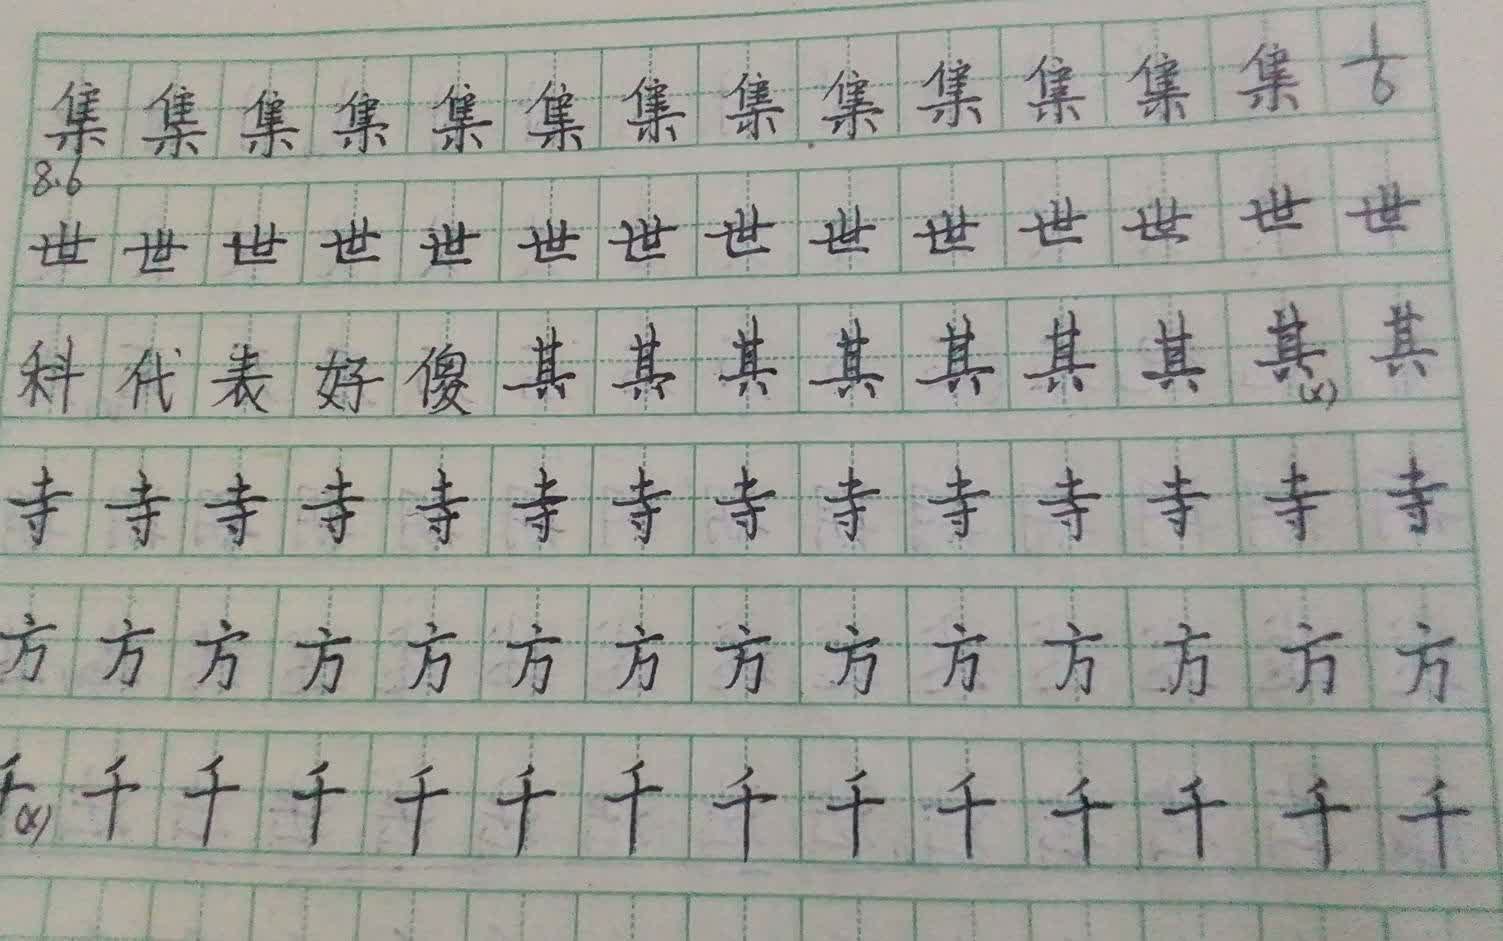 集集集集集集集集集集集集集 1/6
8.6
世世世世世世世世世世世世世世
科代表好傻其其其其其其其其(x)其
寺寺寺寺寺寺寺寺寺寺寺寺寺寺
方方方方方方方方方方方方方方
千(x)千千千千千千千千千千千千千